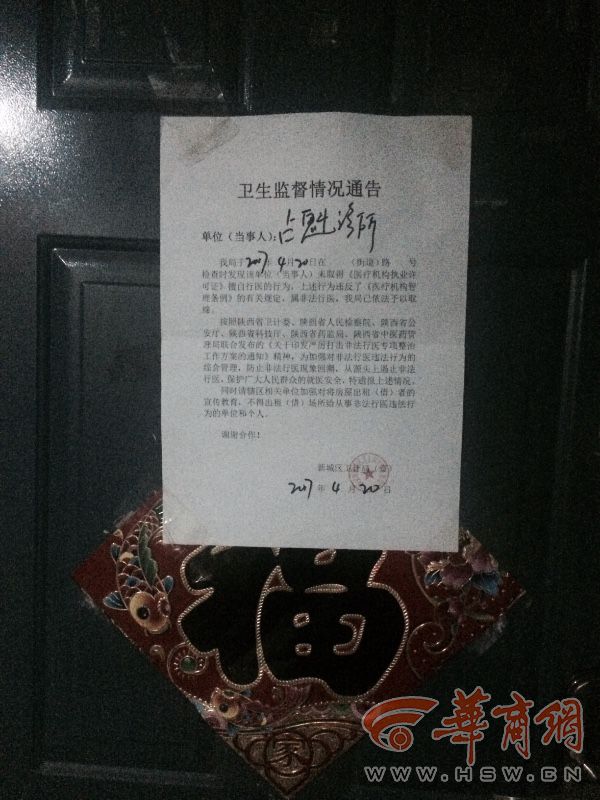 卫生监督情况通告
单位（当事人）：占魁诊所
我局于2017年4月20日在 （街道）路 号
检查时发现该单位（当事人）未取得《医疗机构执业许
可证》擅自行医的行为，上述行为违反了《医疗机构管
理条例》的有关规定，属非法行医，我局已依法予以取
缔。
按照陕西省卫计委、陕西省人民检察院、陕西省公
安厅、陕西省科技厅、陕西省药监局、陕西省中医药管
理局联合发布的《关于印发严厉打击非法行医专项整治
工作方案的通知》精神，为加强对非法行医违法行为的
综合管理，防止非法行医现象回潮，从源头上遏止非法
行医，保护广大人民群众的就医安全，特通报上述情况。
同时请辖区相关单位加强对将房屋出租（借）者的
宣传教育，不得出租（借）场所给从事非法行医违法行
为的单位和个人。
谢谢合作！
新城区卫计局（章）
2017年4月20日
福
家
華商網
WWW.HSW.CN